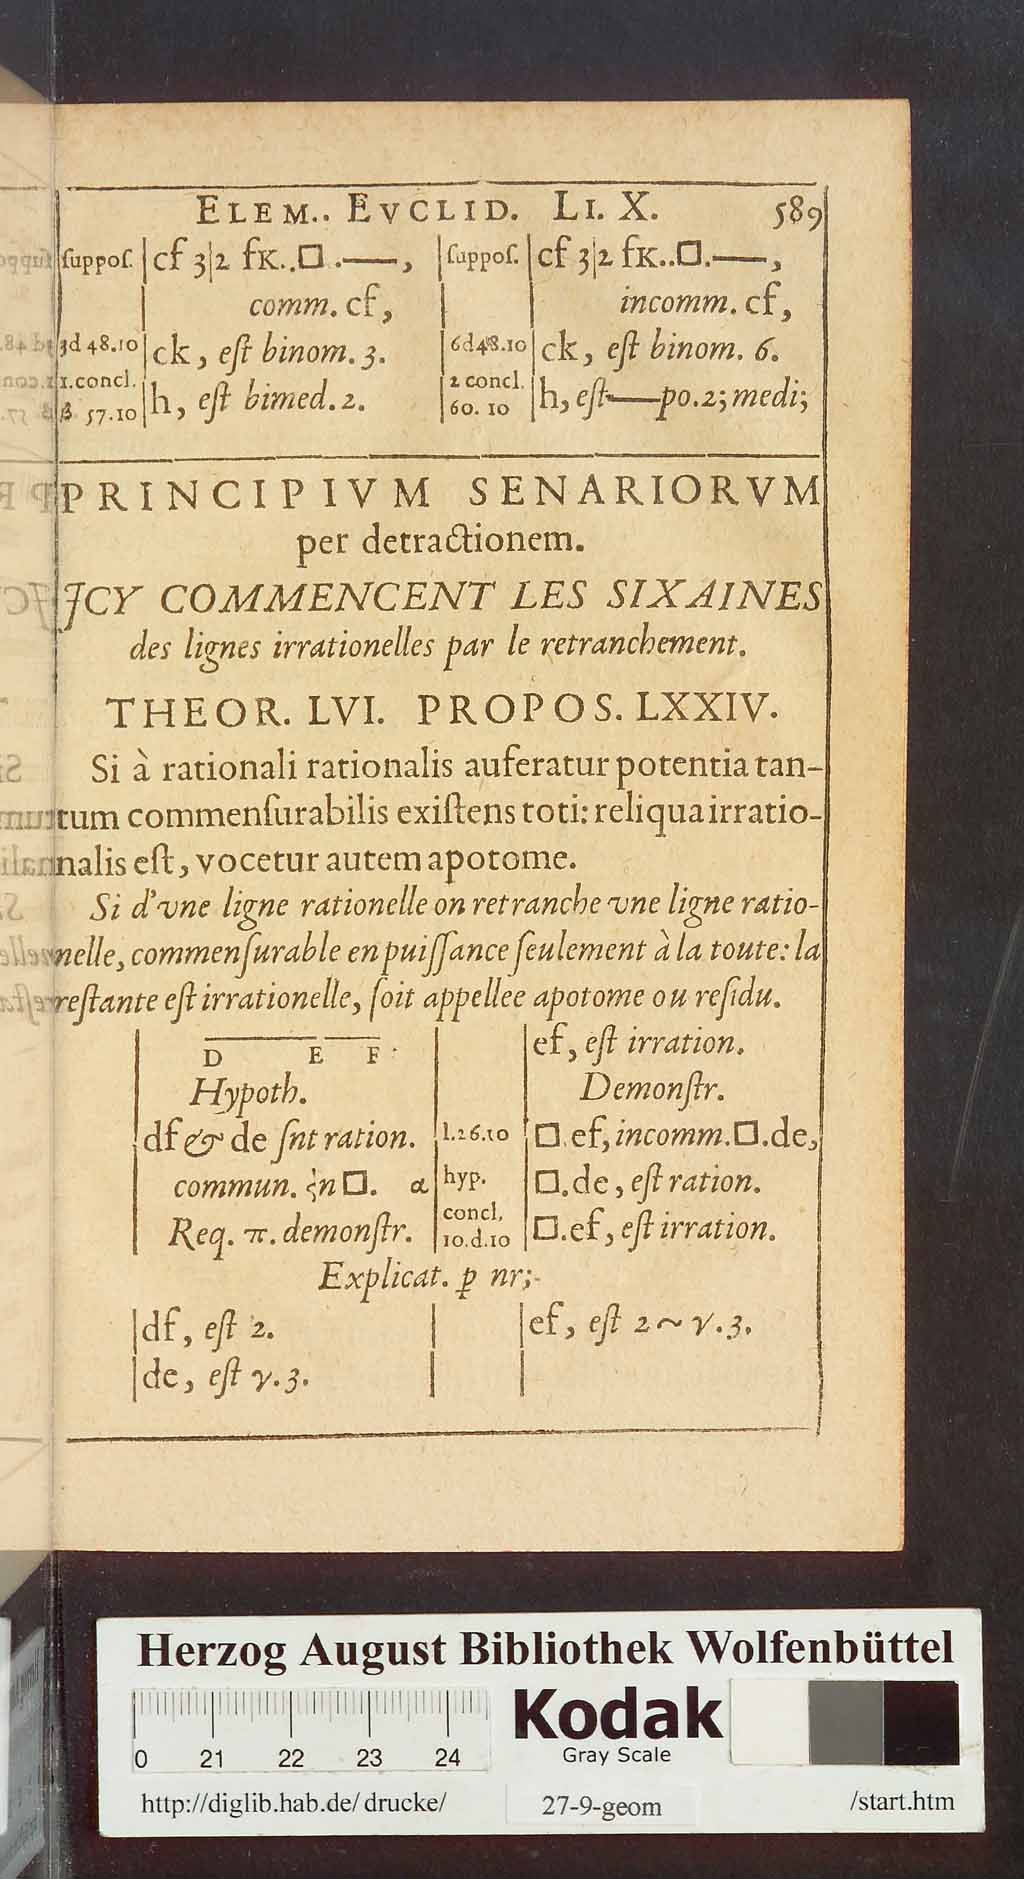 ELEM.. EVCLID. LI. X. 589
suppos. cf 3|2 fK..□.—, suppos. cf 3|2 fK..□.—,
comm. cf, incomm. cf,
3d 48.10 ck, est binom. 3. 6d48.10 ck, est binom. 6.
1.concl. 2 concl.
β 57.10 h, est bimed. 2. 60. 10 h, est—po.2; medi;
PRINCIPIVM SENARIORVM
per detractionem.
ICY COMMENCENT LES SIXAINES
des lignes irrationelles par le retranchement.
THEOR. LVI. PROPOS. LXXIV.
Si à rationali rationalis auferatur potentia tan-
tum commenſurabilis exiſtens toti: reliqua irratio-
nalis eſt, vocetur autem apotome.
Si d'vne ligne rationelle on retranche vne ligne ratio-
nelle, commenſurable en puiſſance ſeulement à la toute: la
reſtante eſt irrationelle, ſoit appellee apotome ou reſidu.
D E F ef, eſt irration.
Hypoth. Demonſtr.
df & de ſnt ration. 1.26.10 □.ef, incomm.□.de,
commun. in □. α hyp. □.de, eſt ration.
concl.
Req. π. demonſtr. 10.d.10 □.ef, eſt irration.
Explicat. p nr;
df, eſt 2. ef, eſt 2~γ.3.
de, eſt γ.3.
Herzog August Bibliothek Wolfenbüttel
0 21 22 23 24
Kodak
Gray Scale
http://diglib.hab.de/drucke/ 27-9-geom /start.htm